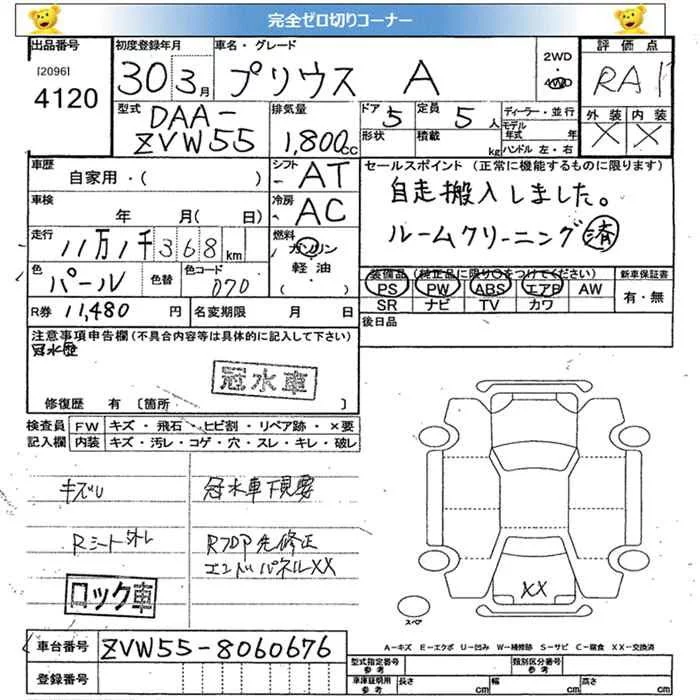 完全ゼロ切りコーナー
出品番号 初度登録年月 車名・グレード 2WD 評価点
[2096] 30 3月 プリウス A 4WD RA1
4120
型式 DAA-ZVW55 排気量 1,800cc ドア 5 定員 5人 ディーラー・並行 外装 内装
形状 積載 kg モデル年式 年 × ×
ハンドル 左・右
車歴 自家用・( ) シフト AT セールスポイント (正常に機能するものに限ります)
車検 年 月( 日) 冷房 AC 自走搬入しました。
走行 11万1千368km 燃料 ガソリン 軽油・( ) ルームクリーニング済
色 パール 色替 色コード 070 装備品(純正品に限り○をつけてください) 新車保証書
PS PW ABS エアB AW 有・無
R券 11,480円 名変期限 月 日 SR ナビ TV カワ
注意事項申告欄(不具合内容等は具体的に記入して下さい) 後日品
冠水歴
冠水車
修復歴 有 [箇所 ]
検査員 FW キズ・飛石・ヒビ割・リペア跡・×要
記入欄 内装 キズ・汚レ・コゲ・穴・スレ・キレ・破レ
キズU 冠水車下見要
Rシート外レ RフロP先修正
エンドパネルXX
ロック車
XX
スペア
A-キズ E-エクボ U-凹み W-補修跡 S-サビ C-腐食 XX-交換済
車台番号 ZVW55-8060676
型式指定番号 参考 類別区分番号 参考
登録番号 車庫証明用 参考 長さ cm 幅 cm 高さ cm